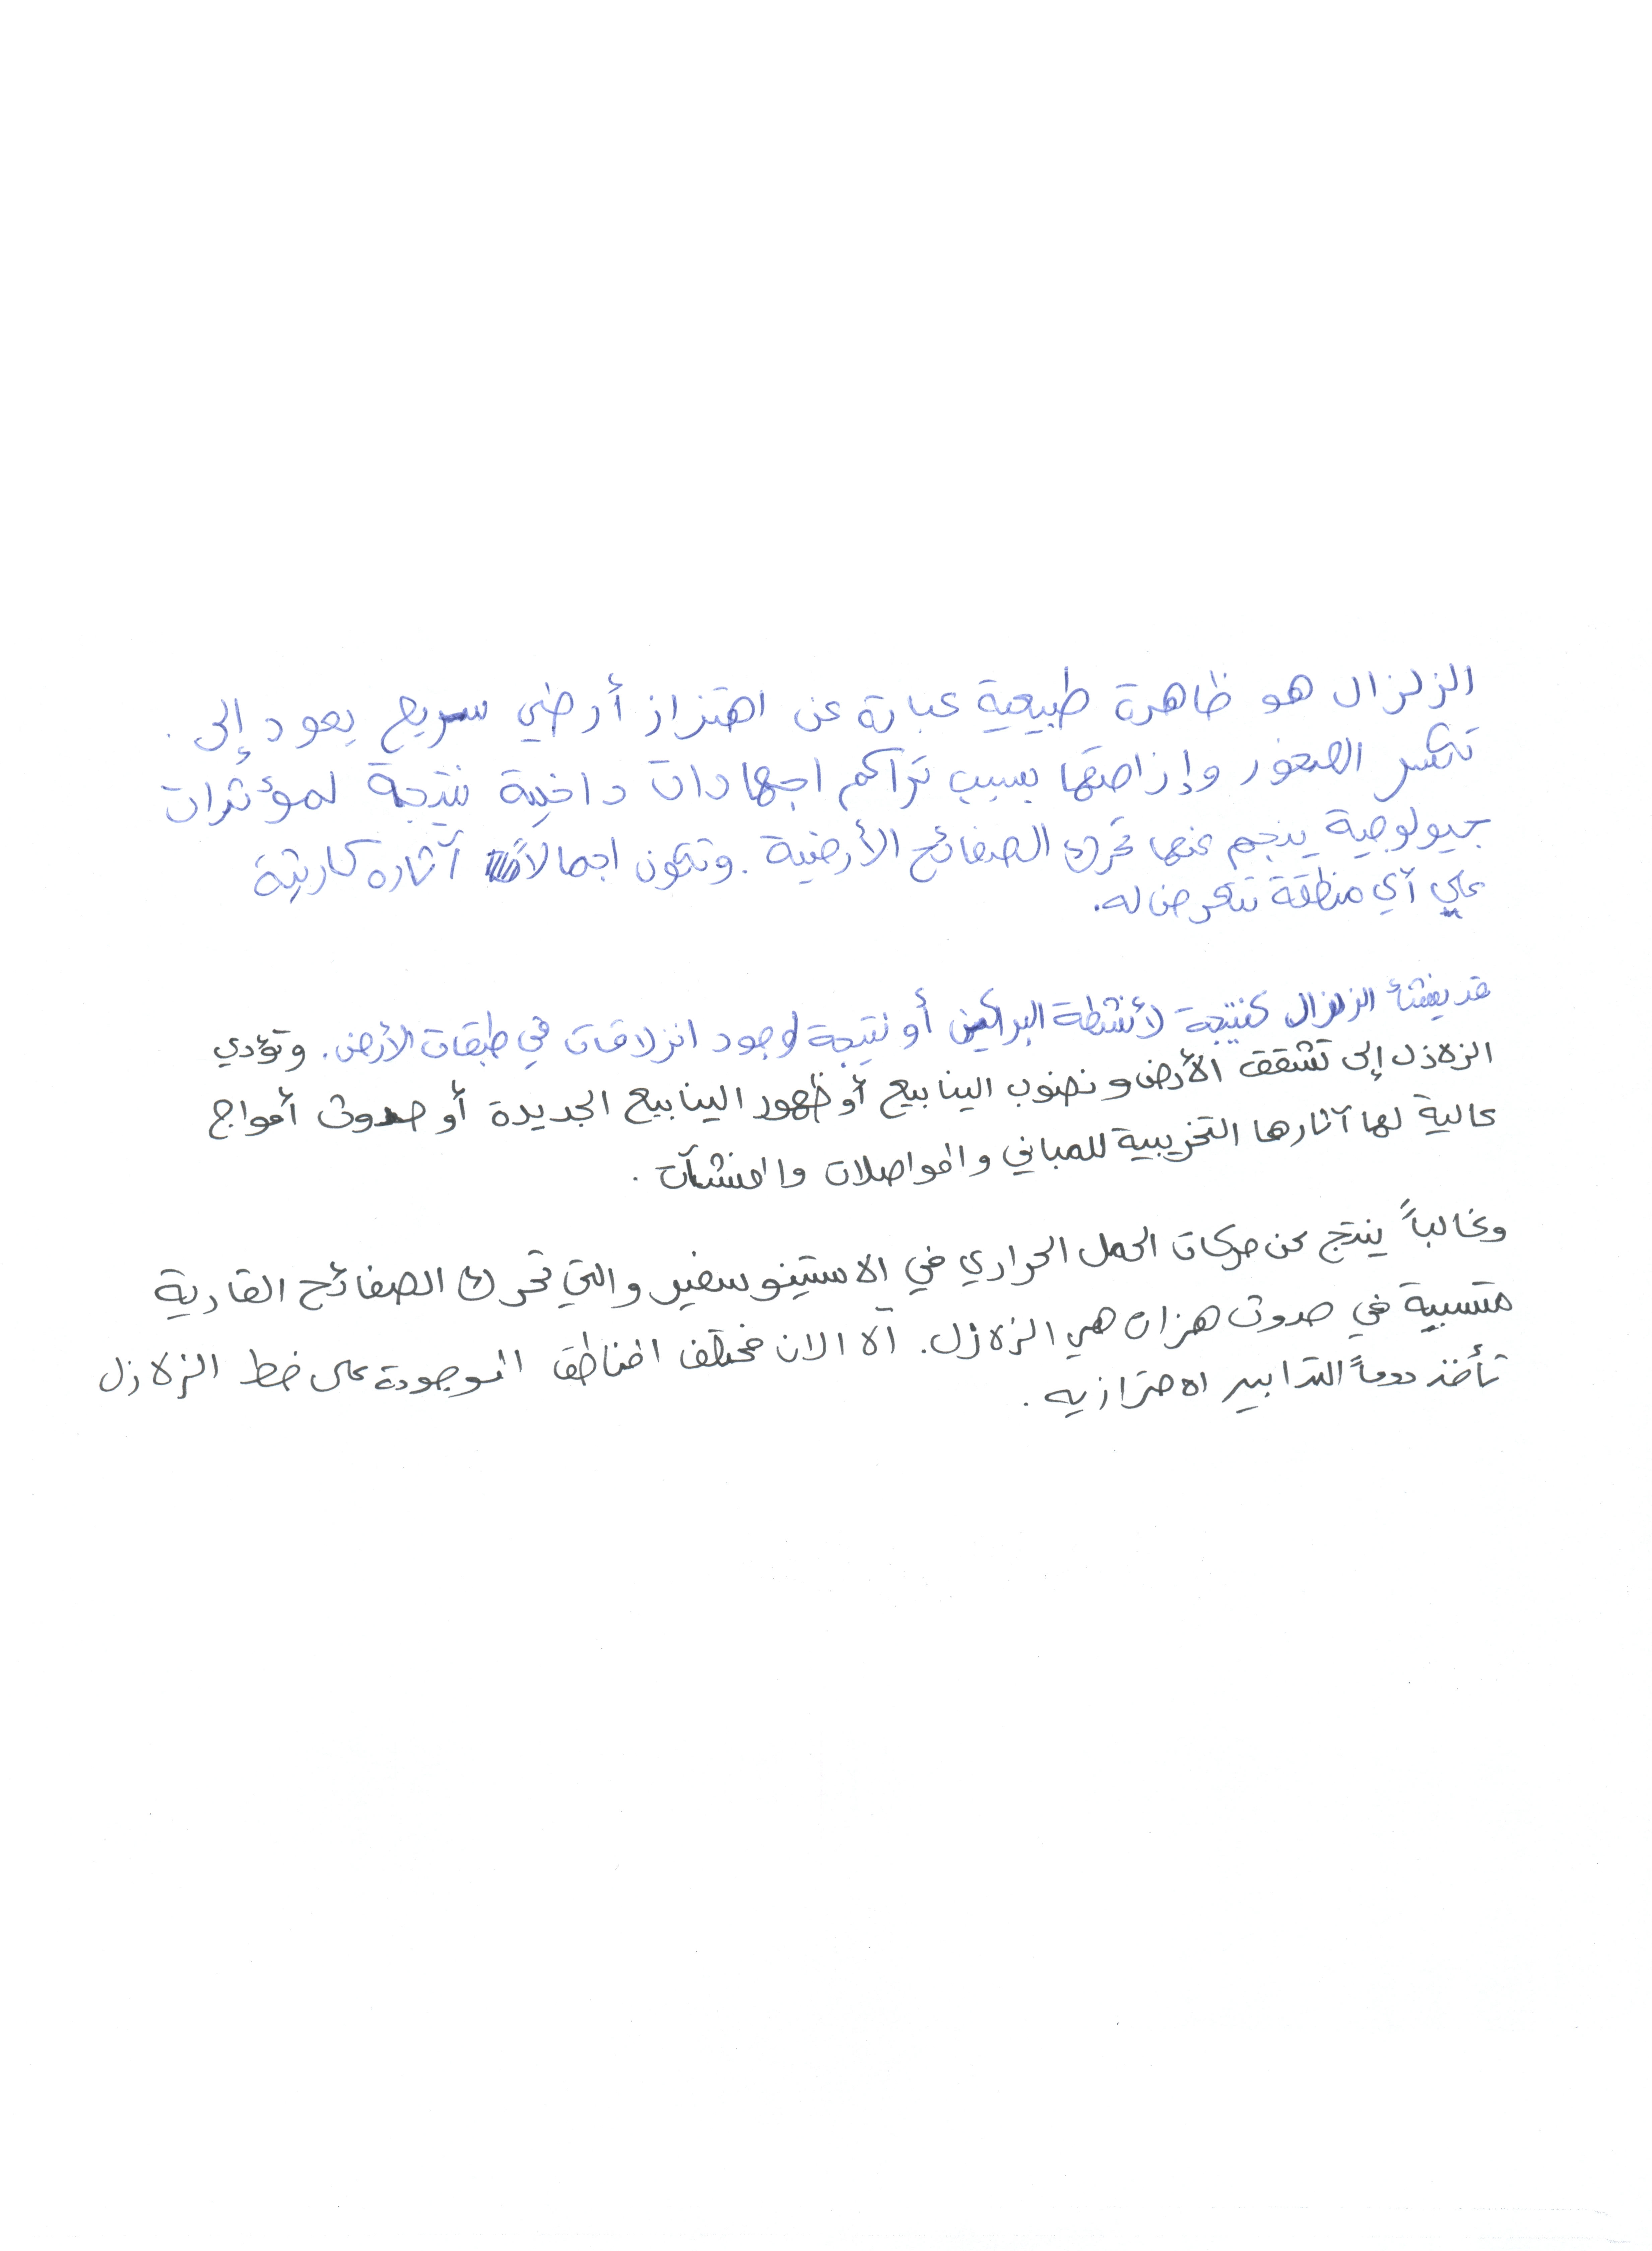 الزلزال هو ظاهرة طبيعية عبارة عن اهتزاز أرضي سريع يعود إلى .
تكسر الصخور وإزاحتها بسبب تراكم اجهادات داخلية نتيجة لمؤثرات
جيولوجية ينجم عنها تحرك الصفائح الأرضية . وتكون اجمالاً آثاره كارثية
علي أي منطقة تتعرض له.
قد ينشأ الزلزال كنتيجة لأنشطة البراكين أو نتيجة لوجود انزلاقات في طبقات الأرض . وتؤدي
الزلازل إلى تشقق الأرض و نضوب الينابيع أو ظهور الينابيع الجديدة أو حدوث أمواج
عالية لها آثارها التخريبية للمباني والمواصلات والمنشآت .
وغالباً ينتج عن حركات الحمل الحراري في الاستينوسفير والتي تحرك الصفائح القارية
متسببة في حدوث هزات هي الزلازل. الا الان مختلف المناطق الموجودة على خط الزلازل
تأخذ دوماً التدابير الاحترازيه .